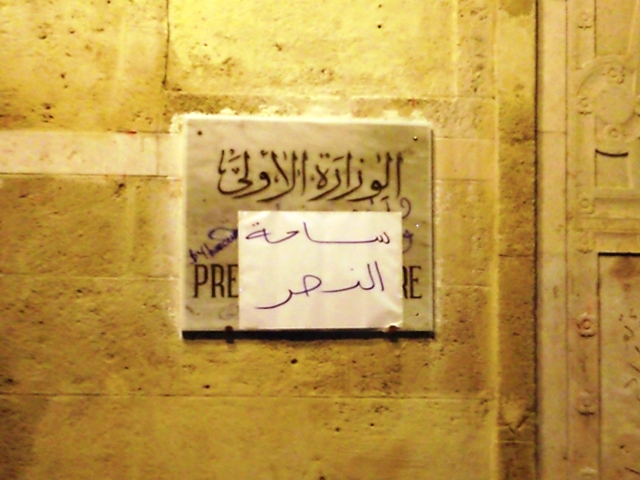 الوزارة الأولى
ساحة
النصر
PRE RE